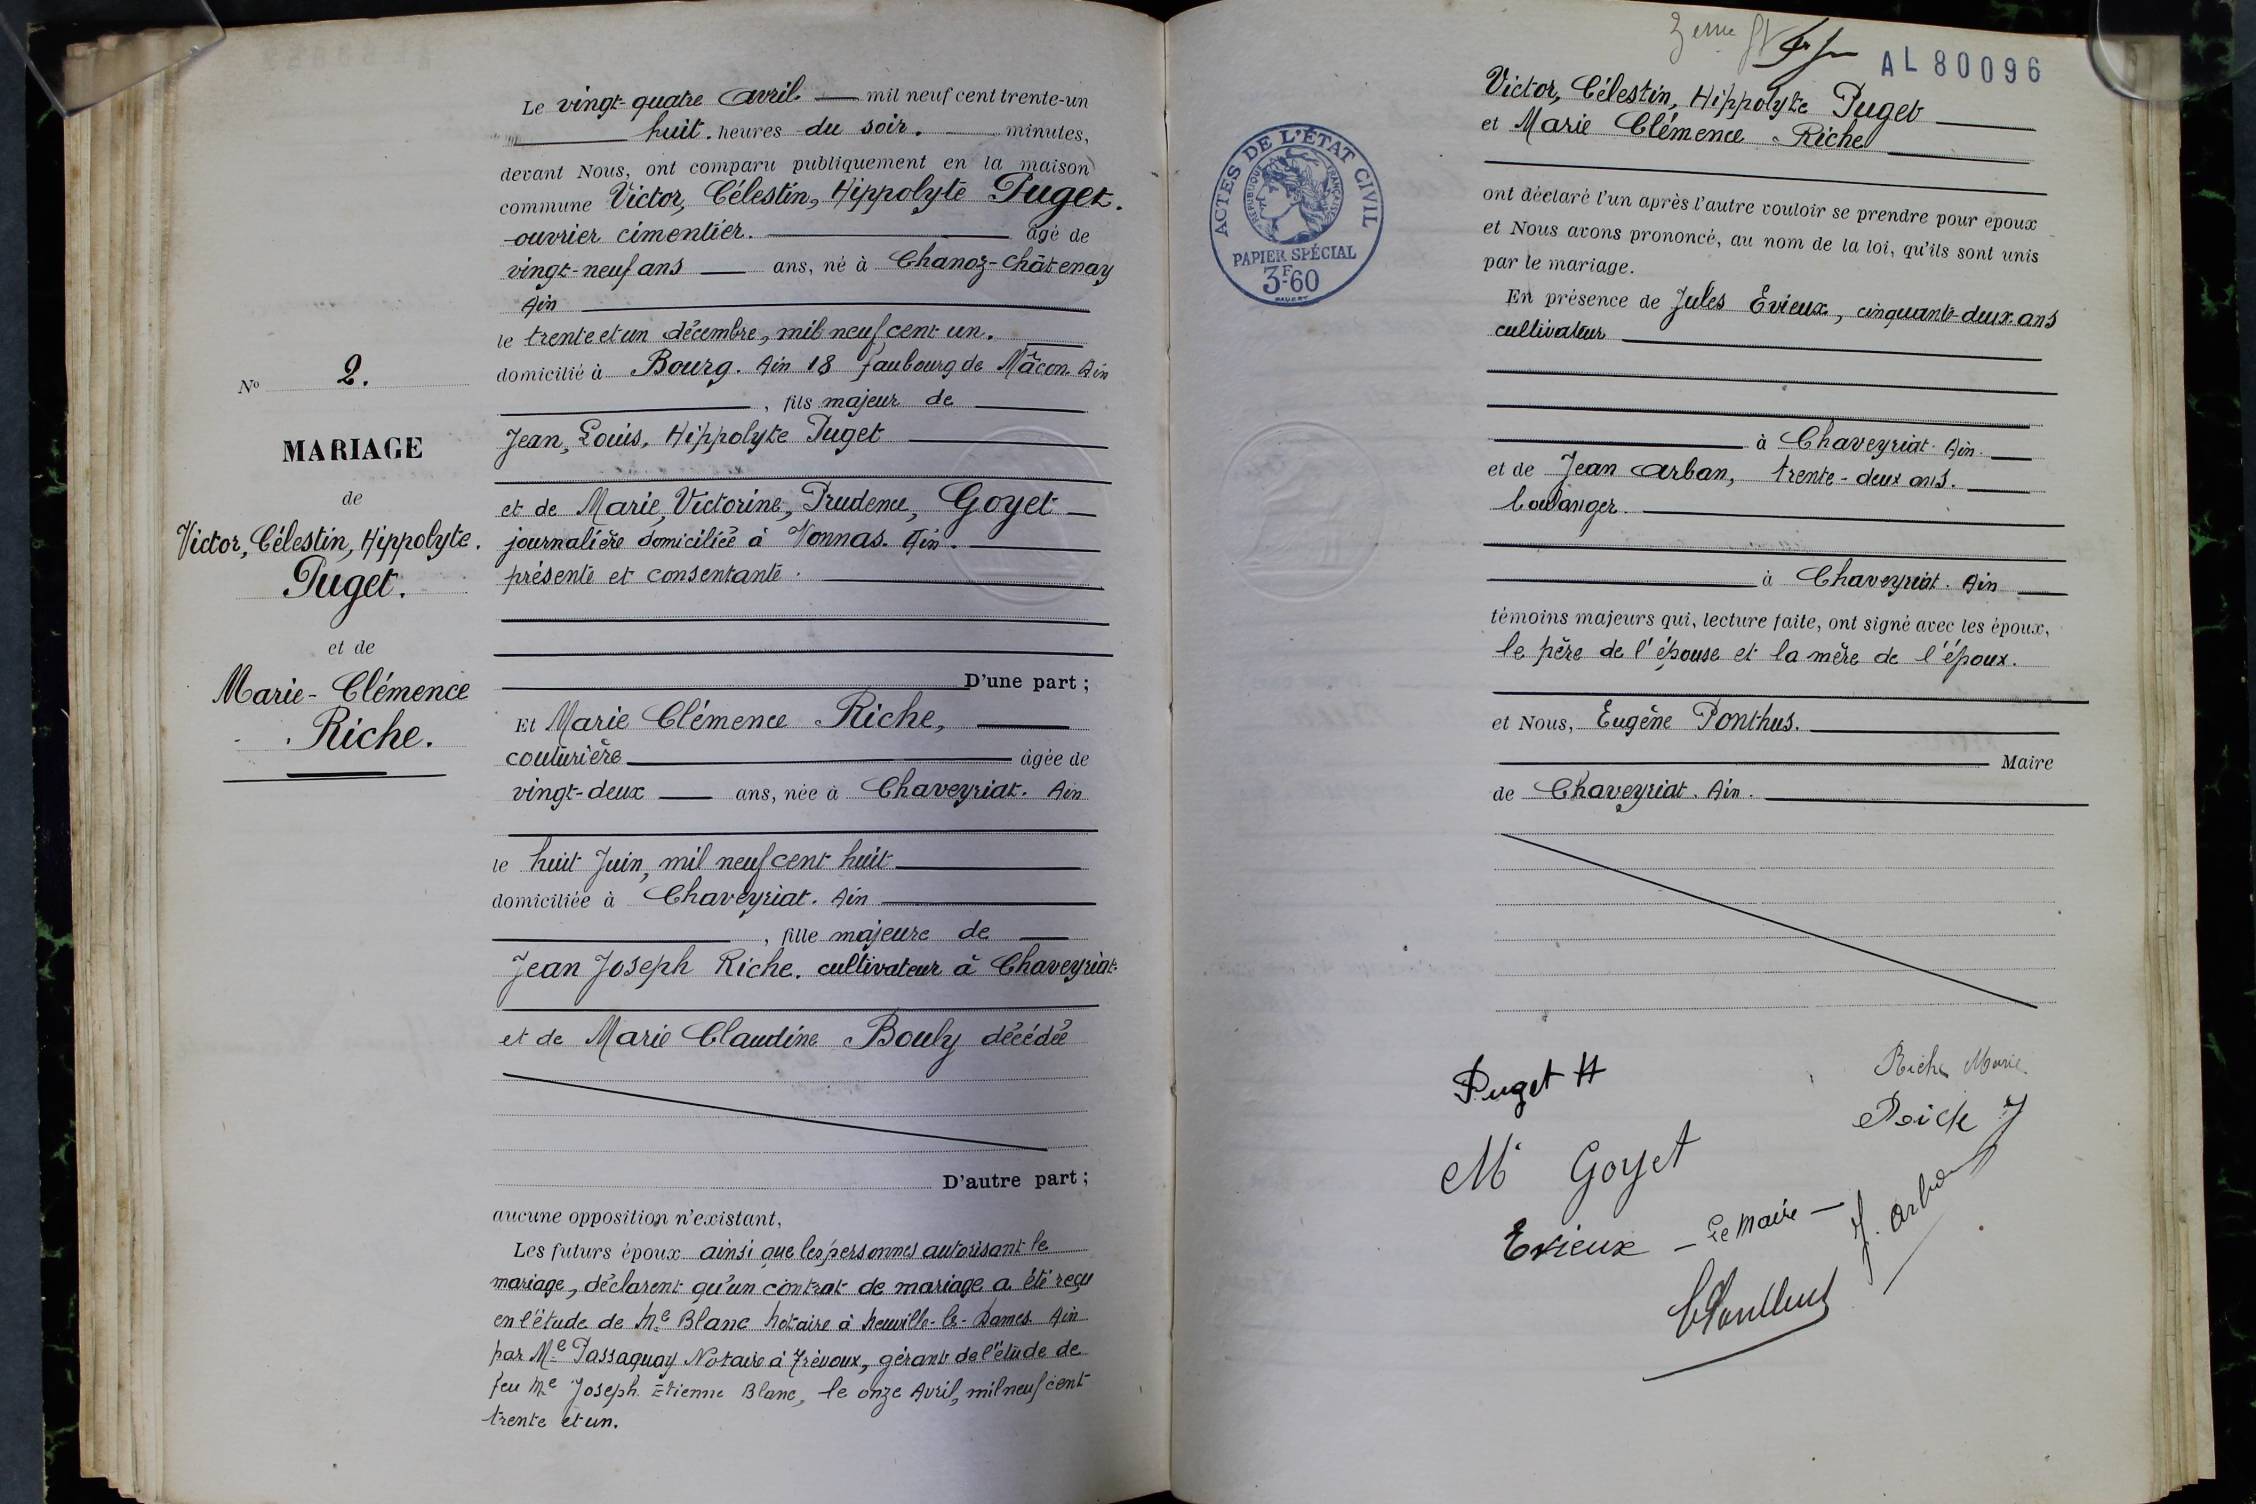 Le vingt-quatre Avril mil neuf cent trente-un
huit heures du soir. minutes,
devant Nous, ont comparu publiquement en la maison
commune Victor, Célestin, Hippolyte Puget.
ouvrier cimentier. âgé de
vingt-neuf ans ans, né à Chanoz-Châtenay
Ain
le trente et un décembre, mil neuf cent un.
domicilié à Bourg. Ain 18 faubourg de Mâcon. Ain
, fils majeur de
Jean, Louis, Hippolyte Puget
et de Marie, Victorine, Prudence, Goyet
journalière domiciliée à Vonnas. Ain.
présente et consentante.
D'une part ;
Et Marie Clémence Riche,
couturière âgée de
vingt-deux ans, née à Chaveyriat. Ain
le huit Juin, mil neuf cent huit
domiciliée à Chaveyriat. Ain
, fille majeure de
Jean Joseph Riche. cultivateur à Chaveyriat
et de Marie Claudine Bouly décédée
D'autre part ;
aucune opposition n'existant,
Les futurs époux ainsi que les personnes autorisant le
mariage, déclarent qu'un contrat de mariage a été reçu
en l'étude de Me Blanc notaire à Neuville-les-Dames Ain
par Me Passaquay Notaire à Trévoux, gérant de l'étude de
feu Me Joseph Etienne Blanc, le onze Avril, mil neuf cent
trente et un.
No 2.
MARIAGE
de
Victor, Célestin, Hippolyte.
Puget.
et de
Marie-Clémence
Riche.
3eme
AL 80096
ACTES DE L'ÉTAT CIVIL
RÉPUBLIQUE FRANÇAISE
PAPIER SPÉCIAL
3F60
Victor, Célestin, Hippolyte Puget
et Marie Clémence Riche
ont déclaré l'un après l'autre vouloir se prendre pour époux
et Nous avons prononcé, au nom de la loi, qu'ils sont unis
par le mariage.
En présence de Jules Evieux, cinquante-deux ans
cultivateur
à Chaveyriat. Ain.
et de Jean Arban, trente-deux ans.
boulanger.
à Chaveyriat. Ain
témoins majeurs qui, lecture faite, ont signé avec les époux,
le père de l'épouse et la mère de l'époux.
et Nous, Eugène Ponthus.
Maire
de Chaveyriat. Ain.
Puget H
Riche Marie
Riche J
M Goyet
J. Arban
Evieux
Le Maire
EPonthus